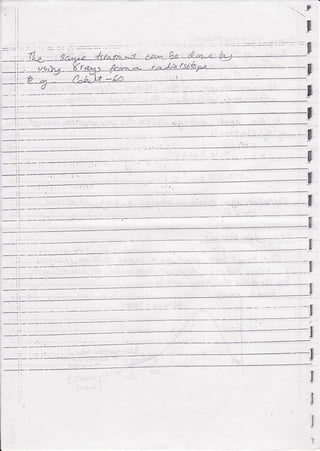 The same treatment can be done by
using γ rays from a radioisotope.
E.g Cobalt-60